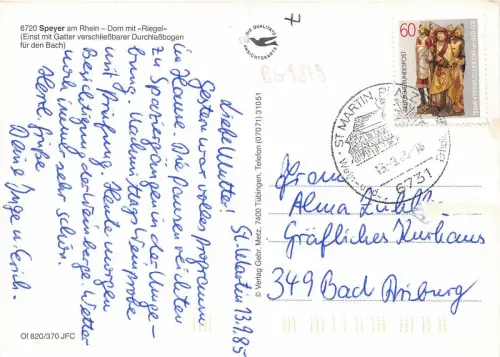 6720 Speyer am Rhein – Dom mit »Riegel«
(Einst mit Gatter verschließbarer Durchlaßbogen
für den Bach)
DIE QUALITÄTS
ANSICHTSKARTE
7
BG9819
60
DEUTSCHE BUNDESPOST
ST MARTIN
13.9.85-18
6731
St. Martin 13.9.85
Liebe Mutter!
Gestern war volles Programm
im Hause. Die Pausen reichten
zu Spaziergängen in der Umge-
bung. Nachmittags Weinprobe
mit Prüfung. Heute morgen
Besichtigung der Weinberge. Wetter
noch immer sehr schön.
Herzl. Grüße
Deine Inge u. Erich.
© Verlag Gebr. Metz, 7400 Tübingen, Telefon (07071) 31051
Frau
Alma
Gräfliches Kurhaus
349 Bad Driburg
Of 820/370 JFC